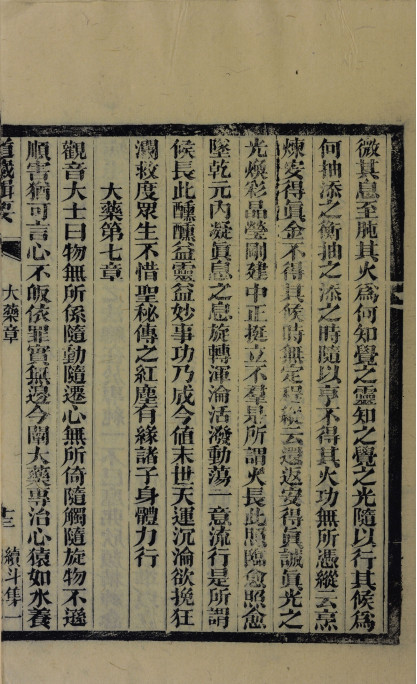 微其息至肫其火爲何知覺之靈知之覺之光隨以行其候爲
何抽添之衡抽之添之時隨以享不得其火功無所憑縱云烹
煉安得眞金不得其候時無定程縱云還返安得眞誠眞光之
光煥彩晶瑩剛建中正挺立不羣是所謂火長此照臨愈照愈
墜乾元內凝眞息之息旋轉渾淪活潑動蕩一意流行是所謂
候長此醺醺益靈益妙事功乃成今値末世天運沉淪欲挽狂
瀾救度眾生不惜聖秘傳之紅塵有緣諸子身體力行
大藥第七章
觀音大士曰物無所係隨勤隨遷心無所倚隨觸隨旋物不遜
順害猶可言心不皈依罪實無邊今闡大藥專治心猿如水養
道藏輯要
大藥章
十三
續斗集一